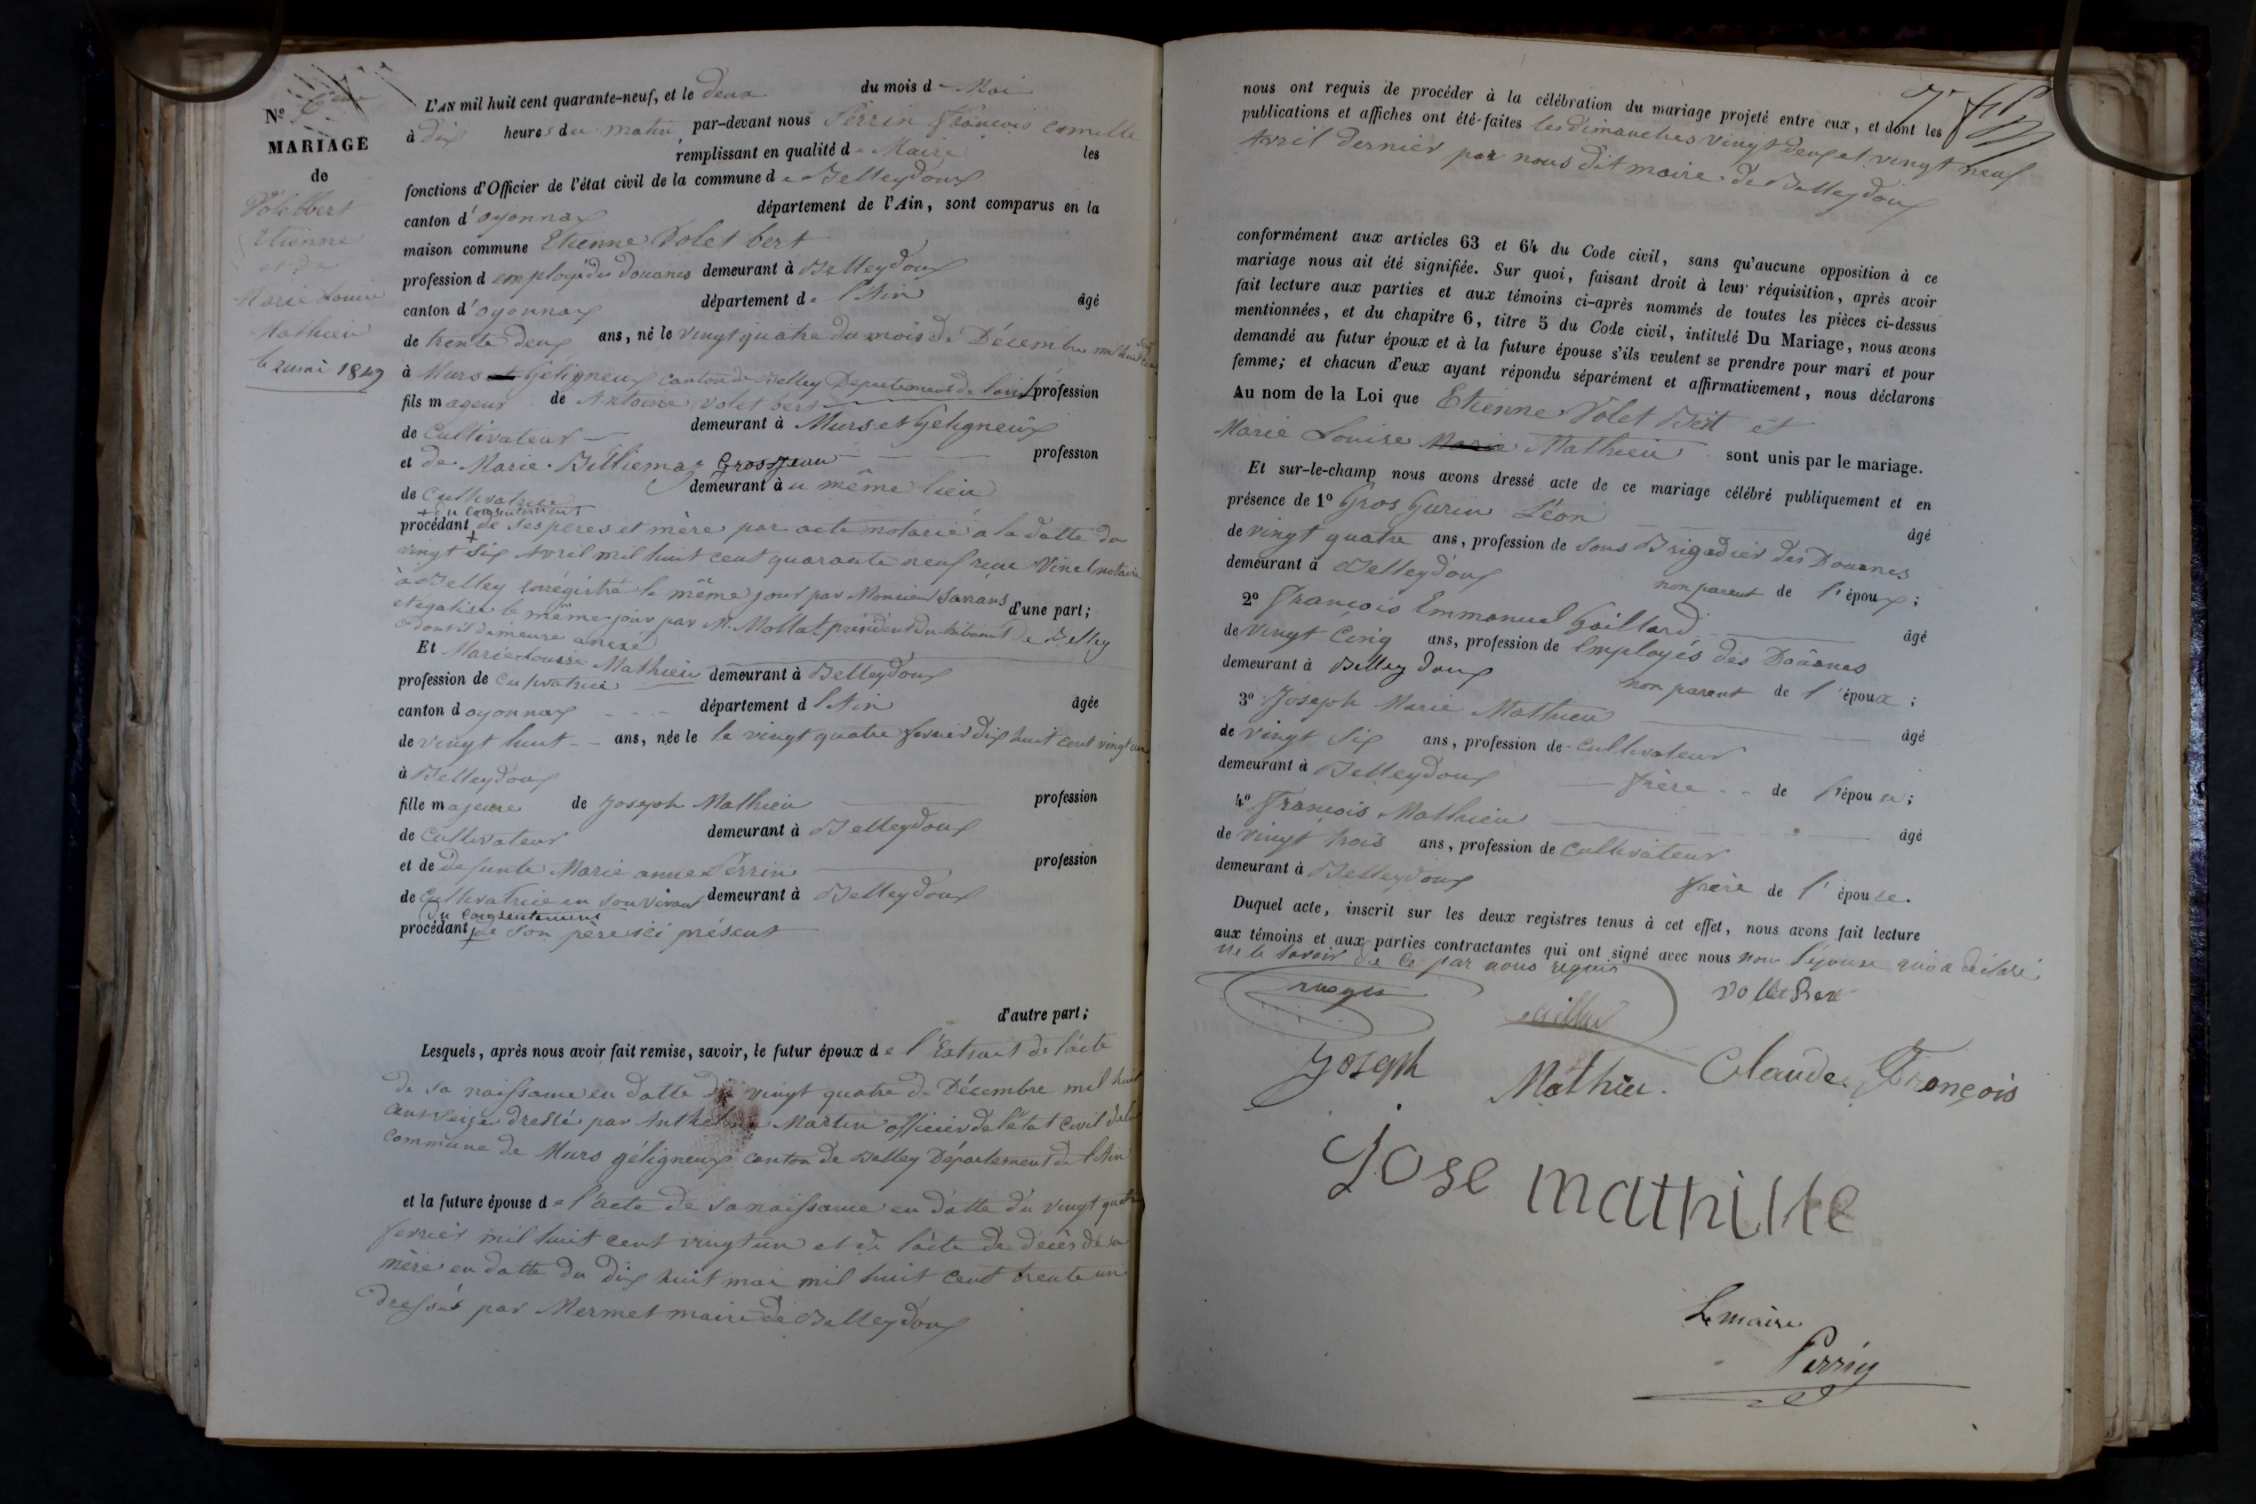 N° 6eme
MARIAGE
de
Volet bert
Etienne
et de
Marie Louise
Mathieu
le 2 mai 1849
L'AN mil huit cent quarante-neuf, et le deux du mois de Mai
à dix heures du matin par-devant nous Perrin François Camille
remplissant en qualité de Maire les
fonctions d'Officier de l'état civil de la commune de Belleydoux
canton d'oyonnax département de l'Ain, sont comparus en la
maison commune Etienne Volet bert
profession d employé des douanes demeurant à Belleydoux
canton d'oyonnax département de l'Ain âgé
de trente deux ans, né le vingt quatre du mois de Décembre mil huit cent
à Murs et Géligneux canton de Belley Département de l'ain profession
fils mageur de Antoine Volet bert
de Cultivateur demeurant à Murs et Geligneux
et de Marie Billiemaz Grosjean profession
de Cultivatrice demeurant à u même lieu
+ du consentement
procédant de ses peres et mère par acte notarié à la datte du
vingt six Avril mil huit cent quarante neuf reçu Vinel notaire
à Belley enrégistré le même jour par Monsieur d'une part;
et légalisé le même jour par M. Mollat président du tribunal de Belley
dont il demeure annexé
Et Marie Louise Mathieu demeurant à Belleydoux
profession de Cultivatrice
canton d oyonnax département d l'Ain âgée
de vingt huit ans, née le le vingt quatre fevrier dix huit cent vingt un
à Belleydoux
fille majeure de Joseph Mathieu profession
de Cultivateur demeurant à Belleydoux
et de defunte Marie anne Perrin profession
de Cultivatrice en son vivant demeurant à Belleydoux
du consentement
procédant de son père ici présent
d'autre part;
Lesquels, après nous avoir fait remise, savoir, le futur époux de l'Extrait de l'acte
de sa naissance en datte du vingt quatre de Décembre mil huit
cent seize dressé par Anthelme Martin officier de l'état civil de la
commune de Murs géligneux canton de Belley Département de l'Ain
et la future épouse de l'acte de sa naissance en datte du vingt quatre
fevrier mil huit cent vingt un et de l'acte de décès de sa
mère en datte du dix huit mai mil huit cent trente un
dressés par Mermet maire de Belleydoux
nous ont requis de procéder à la célébration du mariage projeté entre eux, et dont les
publications et affiches ont été faites les dimanches vingt deux et vingt neuf
Avril dernier par nous dit maire de Belleydoux
conformément aux articles 63 et 64 du Code civil, sans qu'aucune opposition à ce
mariage nous ait été signifiée. Sur quoi, faisant droit à leur réquisition, après avoir
fait lecture aux parties et aux témoins ci-après nommés de toutes les pièces ci-dessus
mentionnées, et du chapitre 6, titre 5 du Code civil, intitulé Du Mariage, nous avons
demandé au futur époux et à la future épouse s'ils veulent se prendre pour mari et pour
femme; et chacun d'eux ayant répondu séparément et affirmativement, nous déclarons
Au nom de la Loi que Etienne Volet Bert et
Marie Louise Marie Mathieu sont unis par le mariage.
Et sur-le-champ nous avons dressé acte de ce mariage célébré publiquement et en
présence de 1° Gros Gurin Léon âgé
de vingt quatre ans, profession de Sous Brigadier des Douanes
demeurant à Belleydoux non parent de l'époux;
2° François Emmanuel Gaillard âgé
de vingt Cinq ans, profession de Employés des Douanes
demeurant à Belley doux non parent de l'époux;
3° Joseph Marie Mathieu âgé
de vingt six ans, profession de cultivateur
demeurant à Belleydoux frère de l'épouse;
4° François Mathieu âgé
de vingt trois ans, profession de Cultivateur
demeurant à Belleydoux frère de l'épouse.
Duquel acte, inscrit sur les deux registres tenus à cet effet, nous avons fait lecture
aux témoins et aux parties contractantes qui ont signé avec nous non l'épouse qui a déclaré
ne le savoir de ce par nous requis
Volet Bert
Joseph Mathieu. Claude François
Jose mathille
Le maire
Perrin